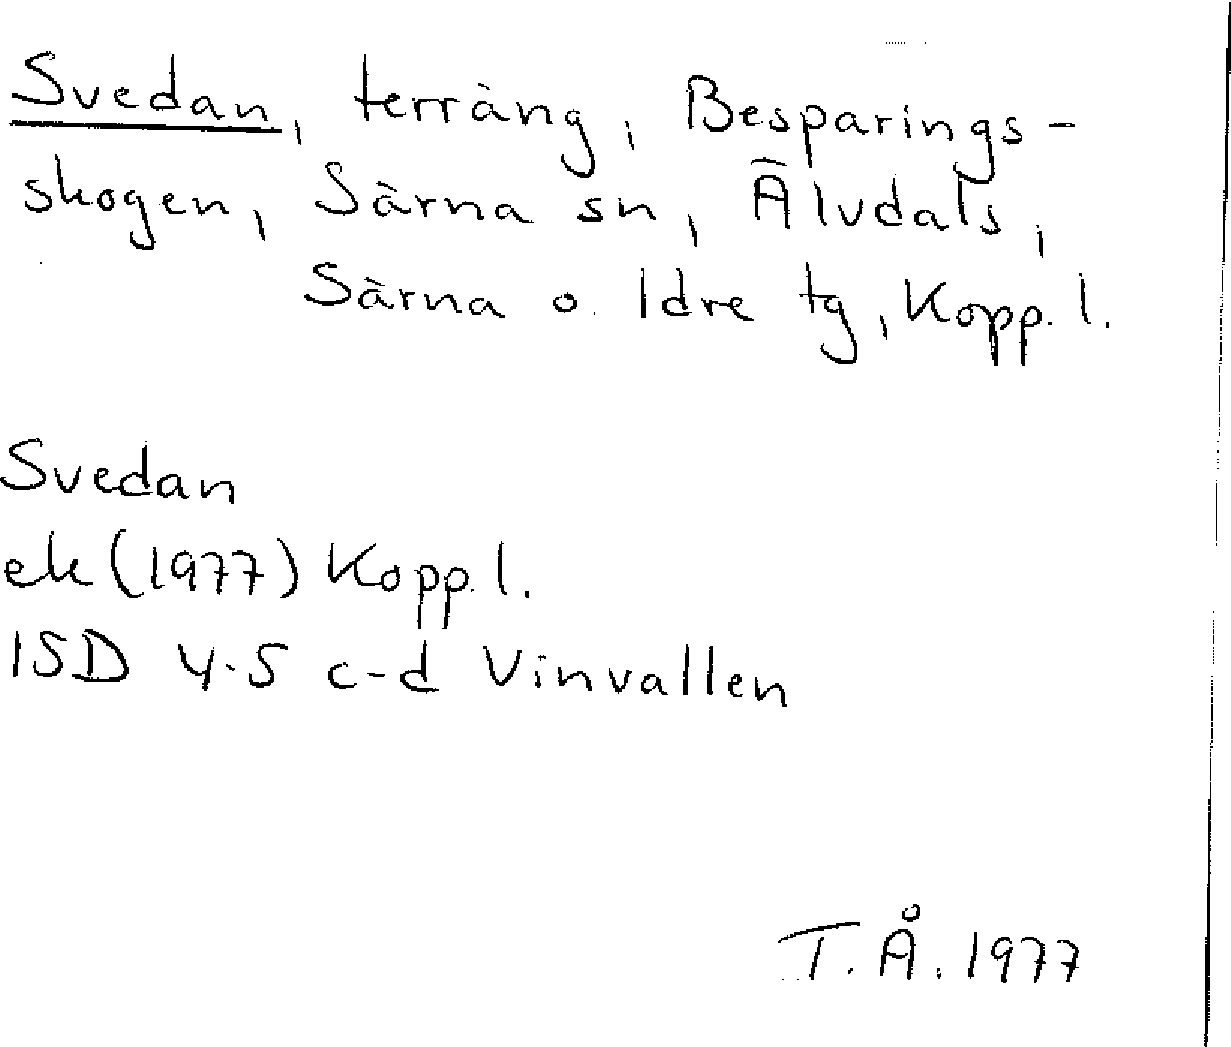 Svedan, terräng, Besparings-
skogen, Särna sn, Älvdals,
Särna o. Idre tg, Kopp. l.
Svedan
ek (1977) Kopp. l.
15D 4-5 c-d Vinvallen
T. Å. 1977